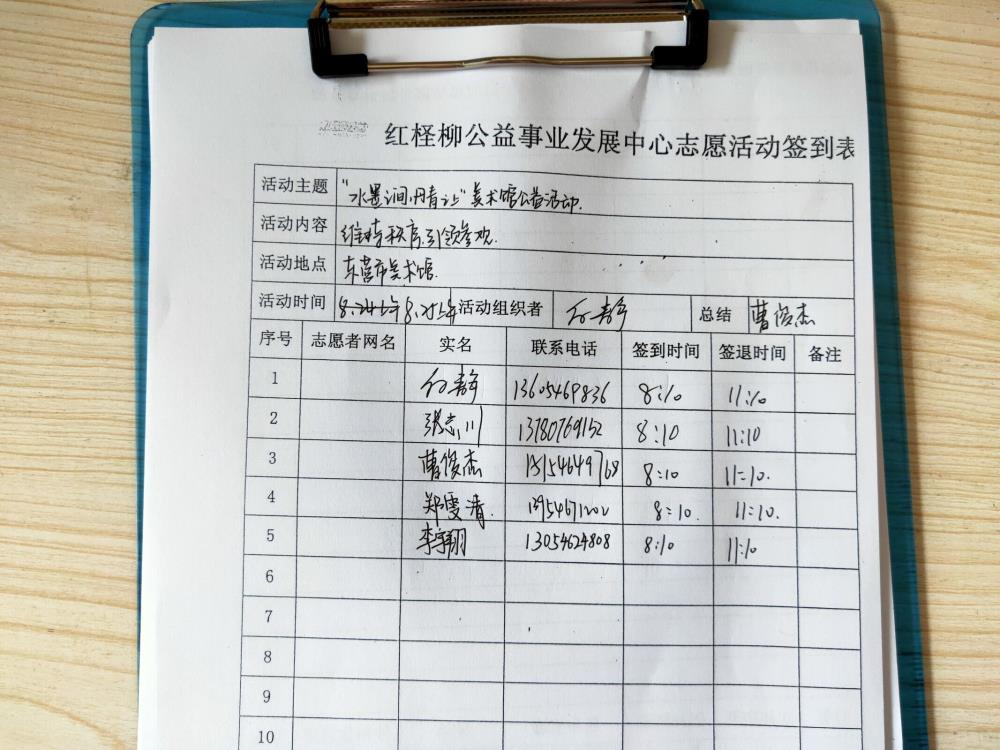 红柽柳公益事业发展中心志愿活动签到表
活动主题 "水墨间,丹青上"美术馆公益活动.
活动内容 维持秩序.引领参观.
活动地点 东营市美术馆.
活动时间 8.25上午 活动组织者 付静 总结 曹俊杰
序号 志愿者网名 实名 联系电话 签到时间 签退时间 备注
1 付静 13605469836 8:10 11:10
2 张志川 13780769152 8:10 11:10
3 曹俊杰 13154649768 8:10 11:10.
4 郑雯清. 8:10. 11:10.
5 李宇翔 13054624808 8:10 11:10
6
7
8
9
10